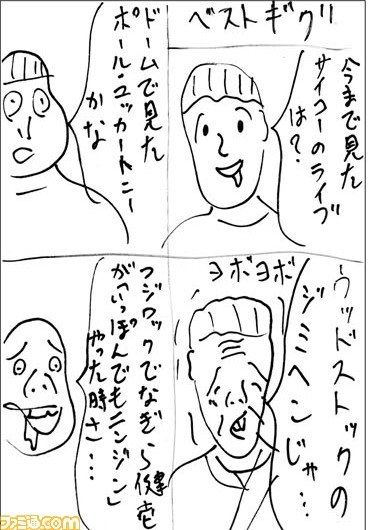 ベストギグ!!
今まで見た
サイコーのライブ
は?
ドームで見た
ポール・マッカートニー
かな
ヨボヨボ
ウッドストックの
ジミヘンじゃ…
フジロックでなぎら健壱
が「いっぽんでもニンジン」
やった時さ…
©ファミ通.com